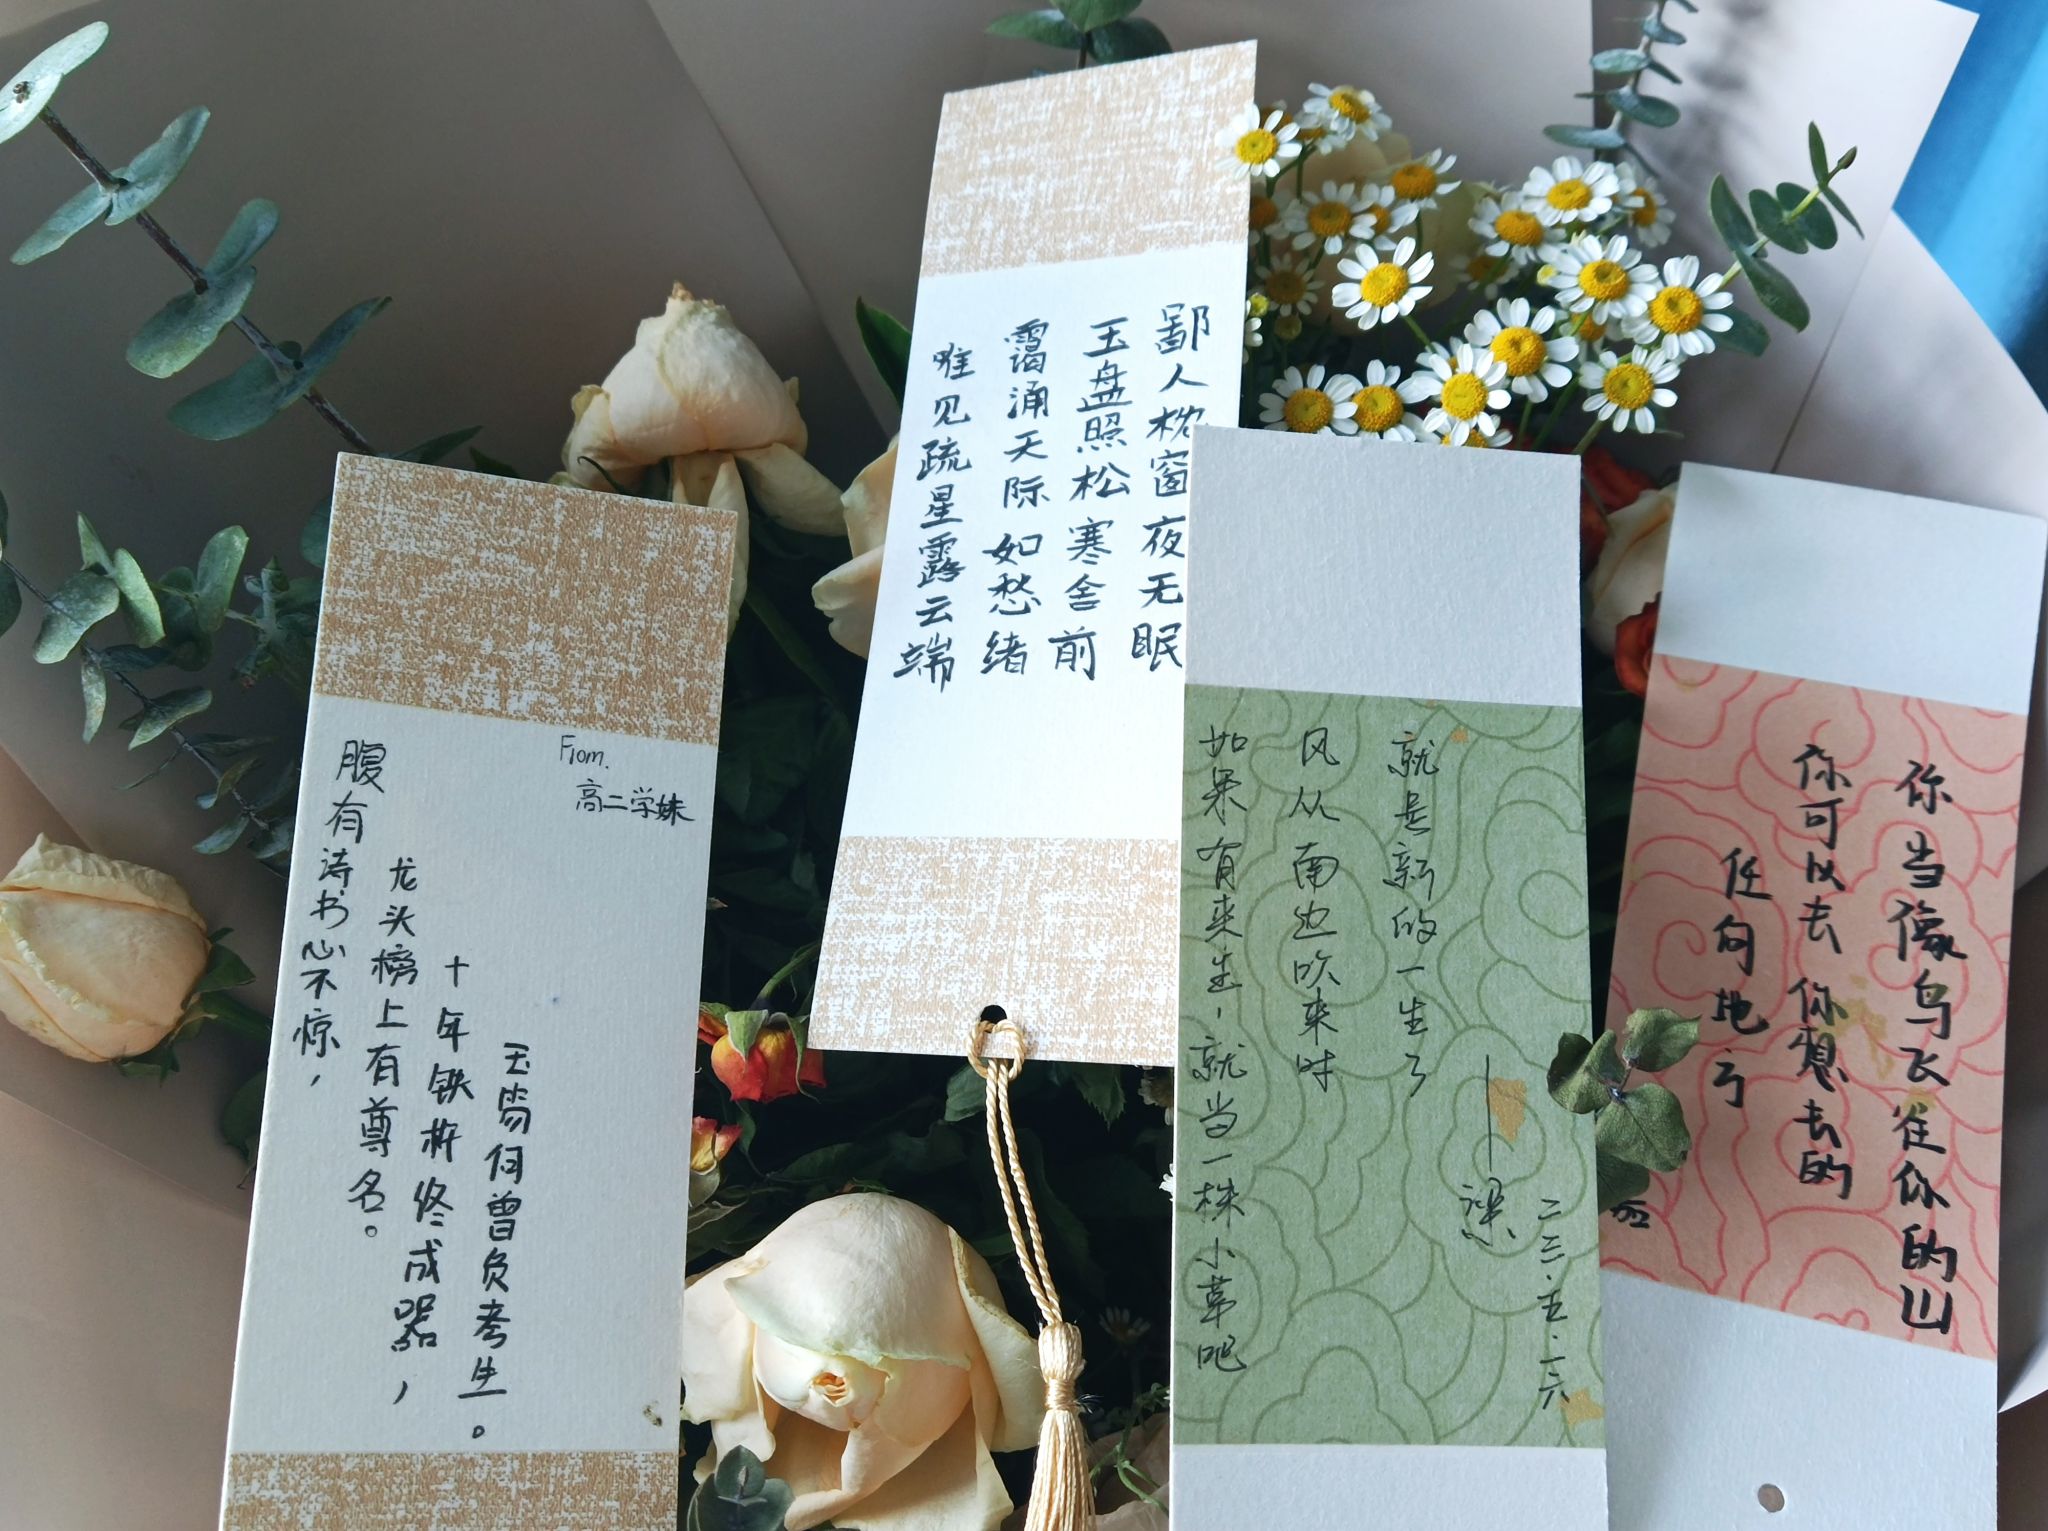 From.
高二学妹
腹有诗书心不惊，
龙头榜上有尊名。
十年铁杵终成器，
玉何曾负考生。
鄙人枕窗夜无眠
玉盘照松寒舍前
霭涌天际如愁绪
唯见疏星露云端
如果有来生，就当一株小草吧
风从南边吹来时
就是新的一生了
二三·五·一六
你当像鸟飞往你的山
你可以去你想去的
任何地方